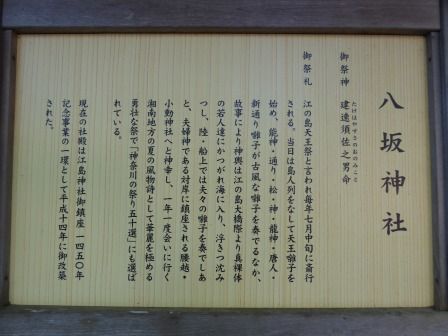 八坂神社
御祭神 建速須佐之男命
たけはやすさのおのみこと
御祭礼 江の島天王祭と言われ毎年七月中旬に斎行
される。当日は島人列をなして天王囃子を
始め、能神・通り・松・神・龍神・唐人・
新通り囃子が古風な囃子を奏でるなか、
故事により神輿は江の島大橋際より真裸体
の若人達にかつがれ海に入り、浮きつ沈み
つし、陸・船上では夫々の囃子を奏でしあ
と、夫婦神である対岸に鎮座される腰越・
小動神社へと神幸し、一年一度会いに行く
湘南地方の夏の風物詩として華麗を極める
勇壮な祭で「神奈川の祭り五十選」にも選ば
れている。
現在の社殿は江島神社御鎮座一四五〇年
記念事業の一環として平成十四年に御改築
された。